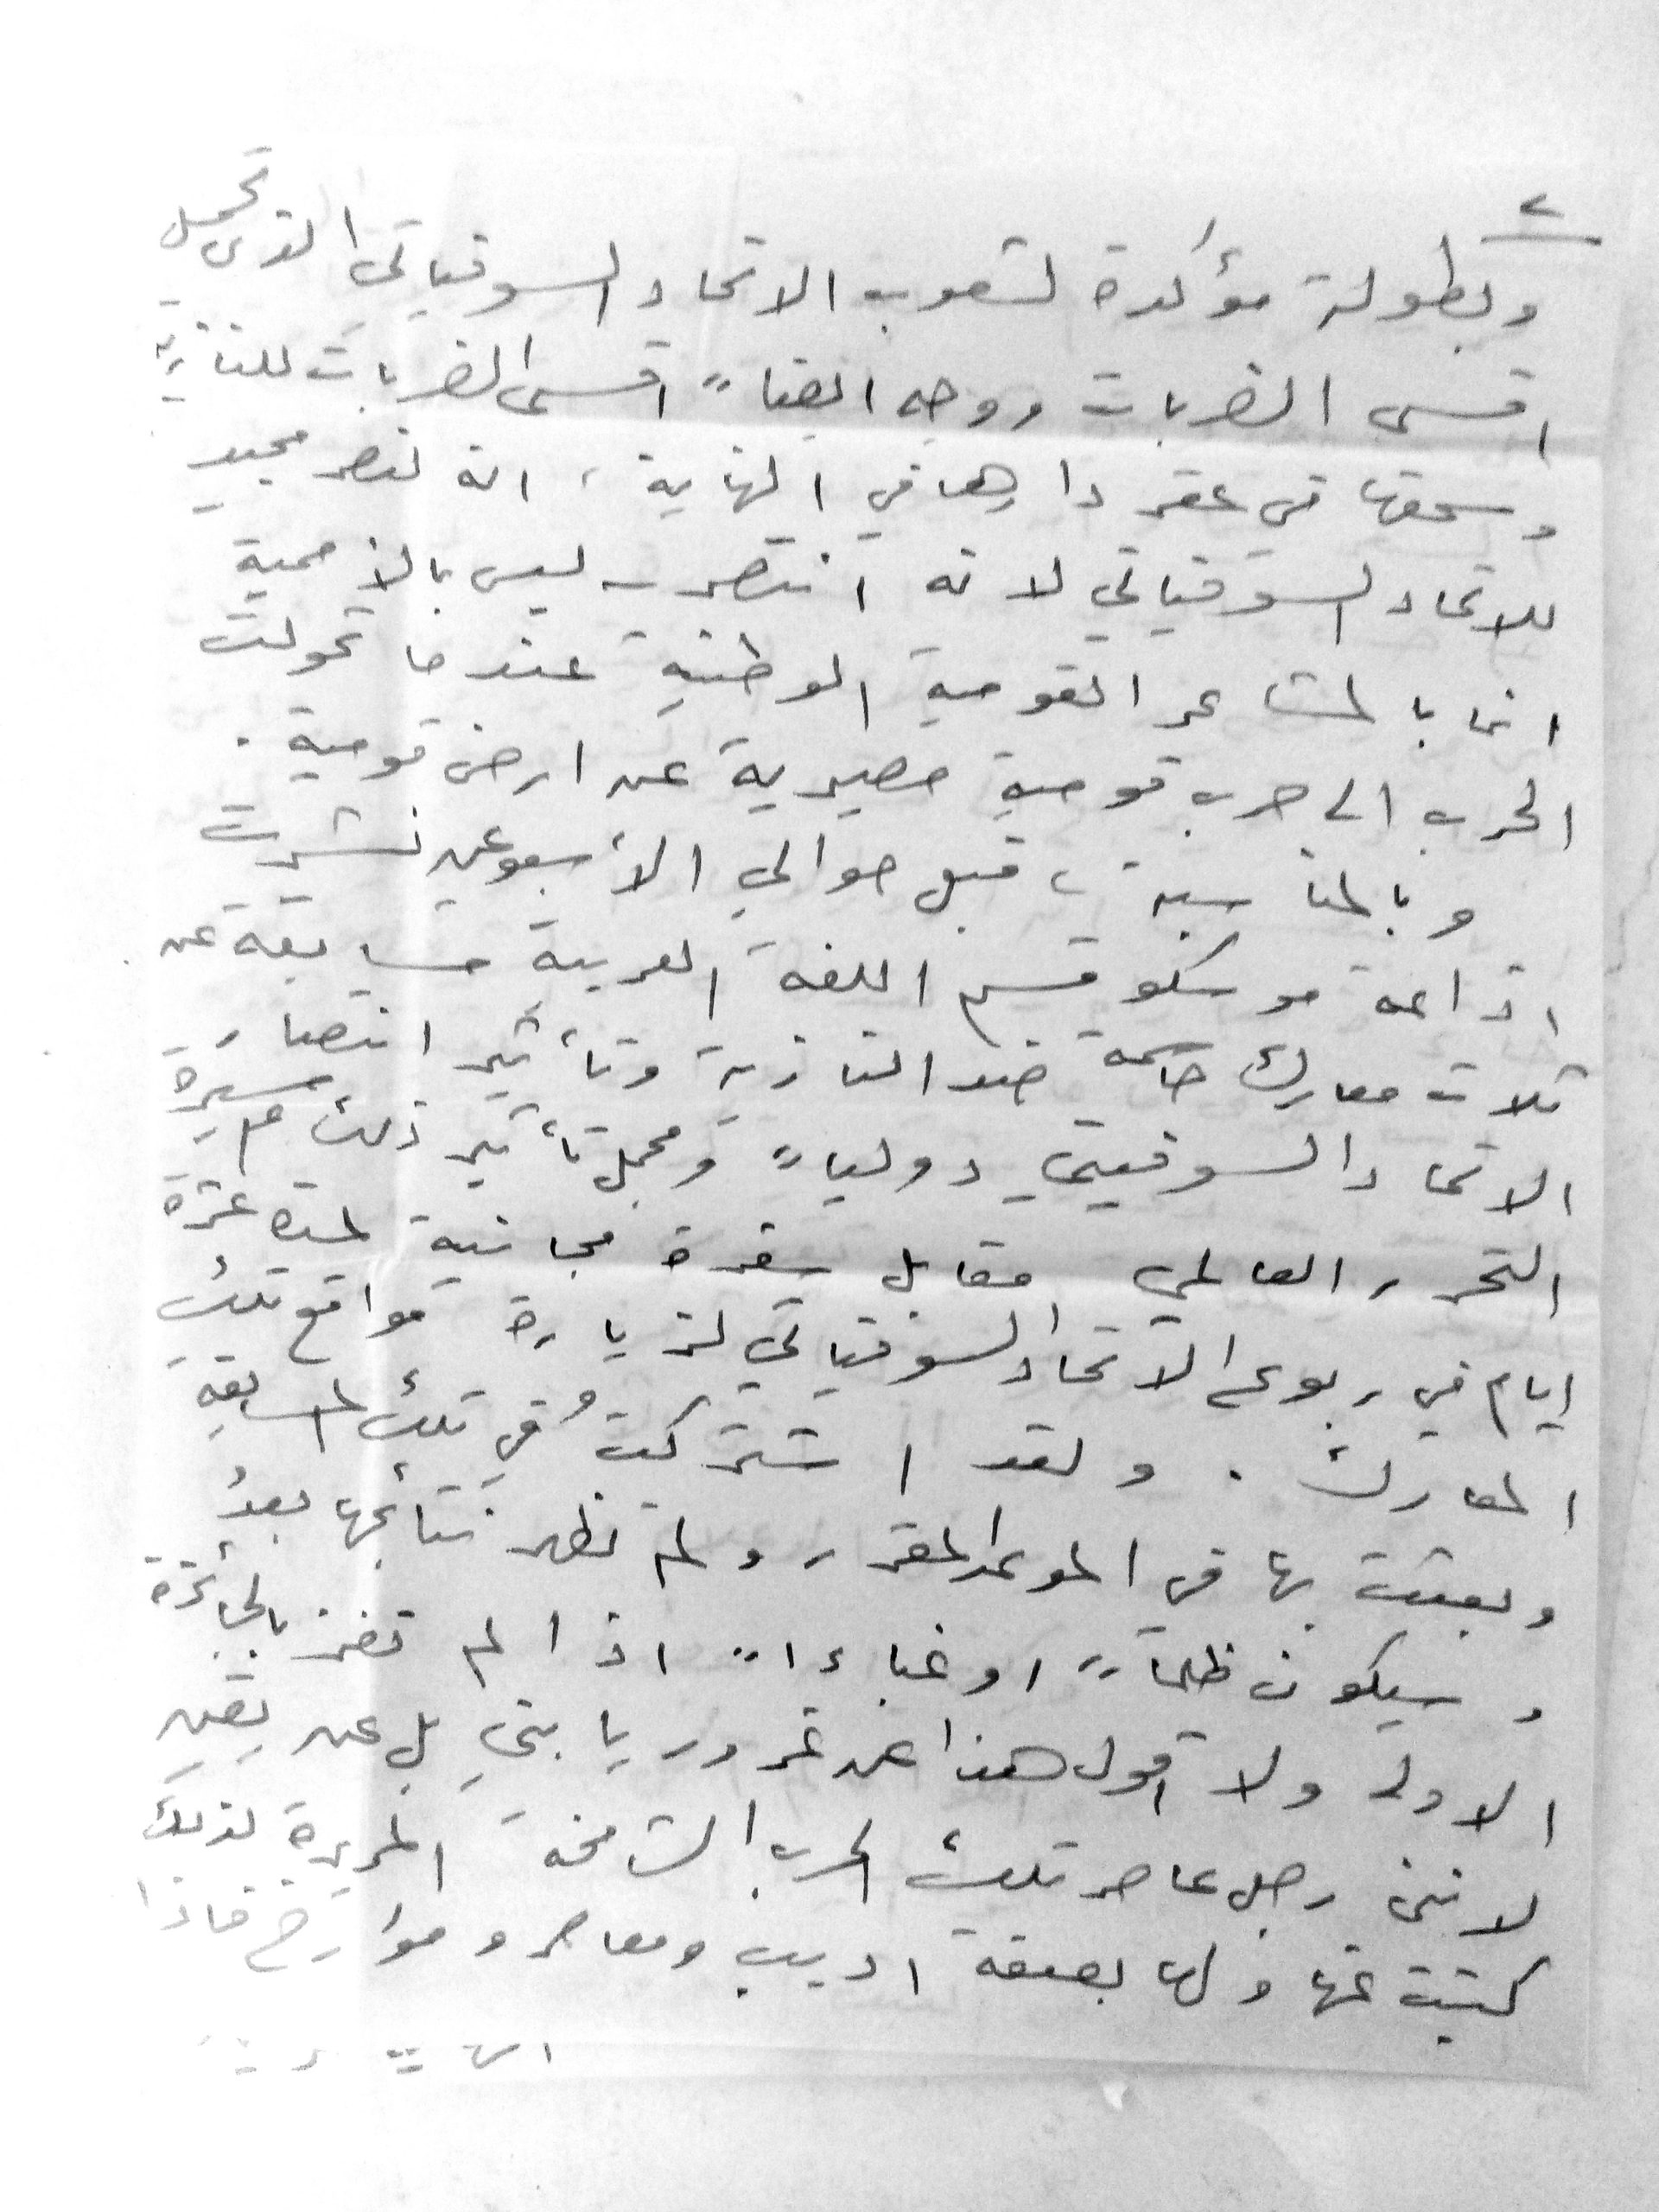 ٢
وبطولة مؤكدة لشعوب الاتحاد السوفياتي الذي تحمل
اقسى الضربات ووجه ايضاً اقسى الضربات للنازية
وسحقها في عقر دارها في النهاية، انه لنصر مجيد
للاتحاد السوفياتي لانه انتصر ليس بالأممية
انما بالمشاعر القومية الوطنية عندما تحولت
الحرب الى حرب قومية مصيرية عن ارض قومية.
وبالمناسبة، قبل حوالي الأسبوعين نشرت
اذاعة موسكو قسم اللغة العربية مسابقة عن
ثلاث معارك حاسمة ضد النازية وتأثير انتصار
الاتحاد السوفيتي دولياً ومجمل تأثير ذلك على مسيرة
التحرر العالمي مقابل سفرة مجانية لمدة عشرة
ايام في ربوع الاتحاد السوفياتي لزيارة مواقع تلك
المعارك. ولقد اشتركتُ في تلك المسابقة
وبعثت بها في الموعد المقرر ولم تظهر نتائجها بعدُ
وسيكون ظلماً او غباءاً اذا لم تفز بالجائزة
الاولى ولا اقول هذا عن غرور يا بنيِ بل عن يقين
لانني رجل عاصر تلك الحرب الشامخة المريرة لذلك
كتبت عنها ولها بصفة اديب ومعاصر ومؤرخ فاذا